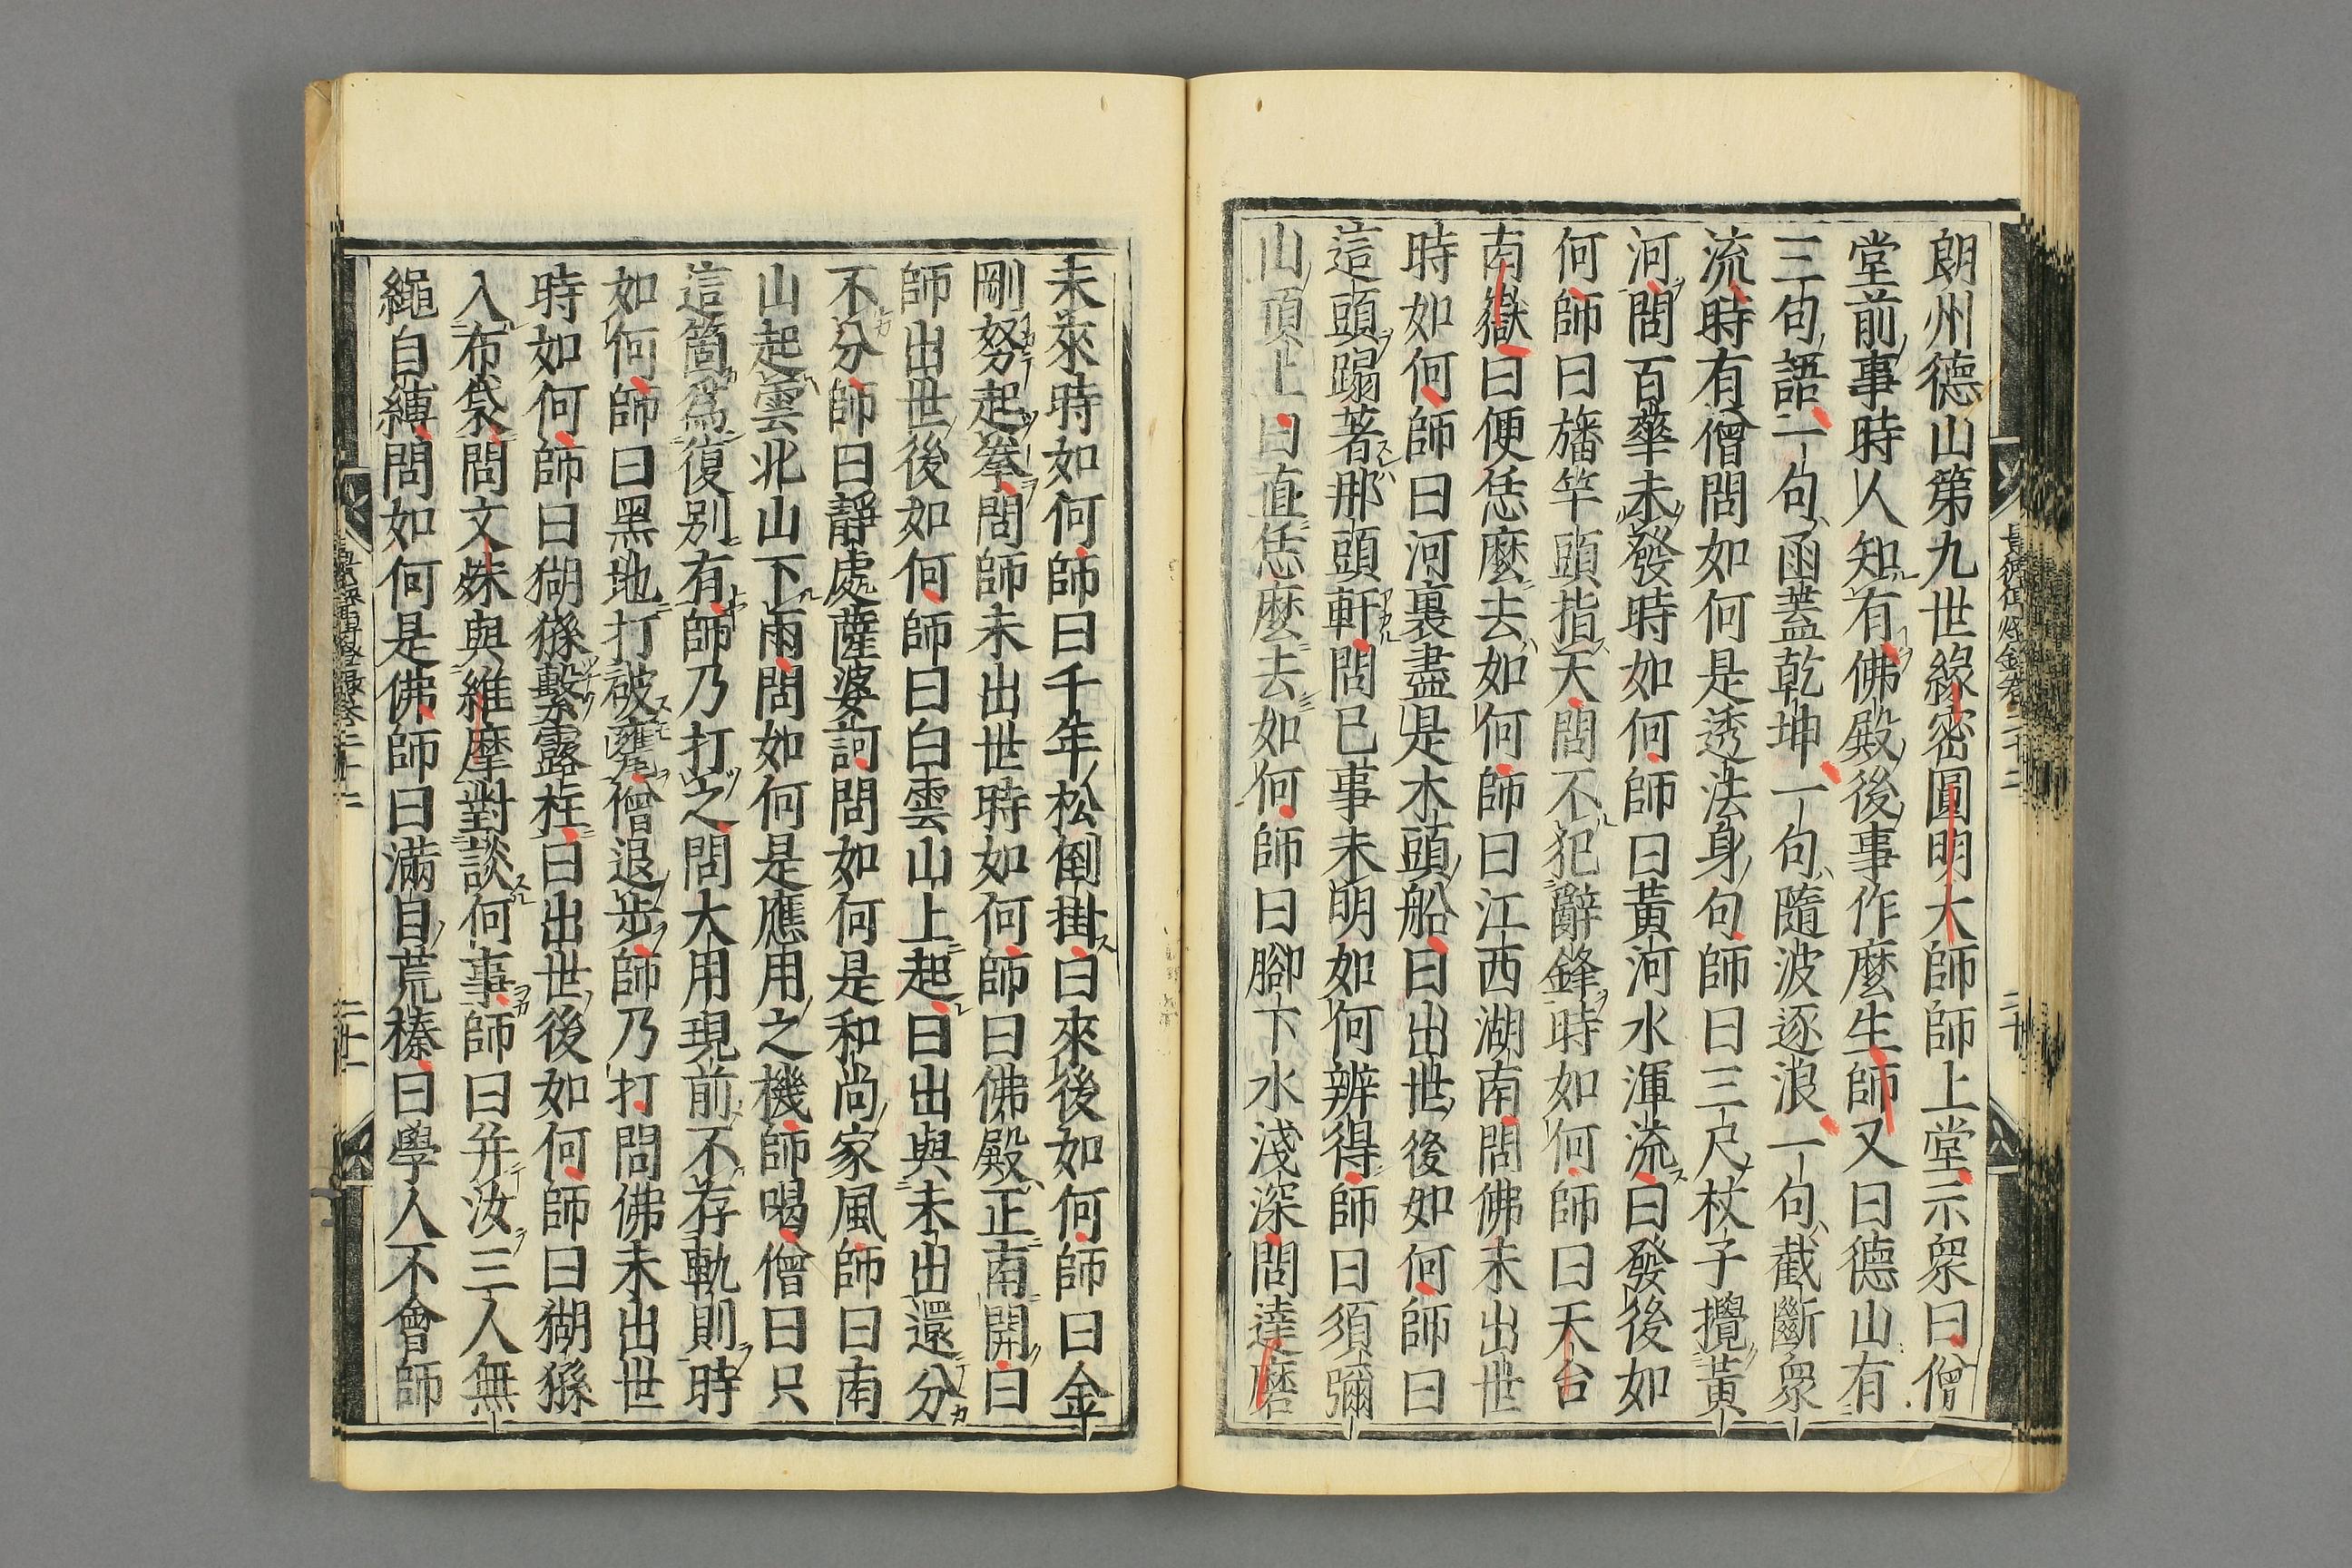 朗州德山第九世緣密圓明大師師上堂示衆曰僧
堂前事時人知有佛殿後事作麼生師又曰德山有
三句語一句函蓋乾坤一句隨波逐浪一句截斷衆
流時有僧問如何是透法身句師曰三尺杖子攪黃
河問百華未發時如何師曰黃河水渾流曰發後如
何師曰旛竿頭指天問不犯辭鋒時如何師曰天台
南嶽曰便恁麼去如何師曰江西湖南問佛未出世
時如何師曰河裏盡是木頭船曰出世後如何師曰
這頭蹋著那頭軒問已事未明如何辨得師曰須彌
山頂上曰直恁麼去如何師曰腳下水淺深問達磨
未來時如何師曰千年松倒掛曰來後如何師曰金
剛努起拳問師未出世時如何師曰佛殿正南開曰
師出世後如何師曰白雲山上起曰出與未出還分
不分師曰靜處薩婆訶問如何是和尚家風師曰南
山起雲北山下雨問如何是應用之機師喝僧曰只
這箇爲復別有師乃打之問大用現前不存軌則時
如何師曰黑地打破甕僧退步師乃打問佛未出世
時如何師曰猢猻繫露柱曰出世後如何師曰猢猻
入布袋問文殊與維摩對談何事師曰并汝三人無
繩自縛問如何是佛師曰滿目荒榛曰學人不會師